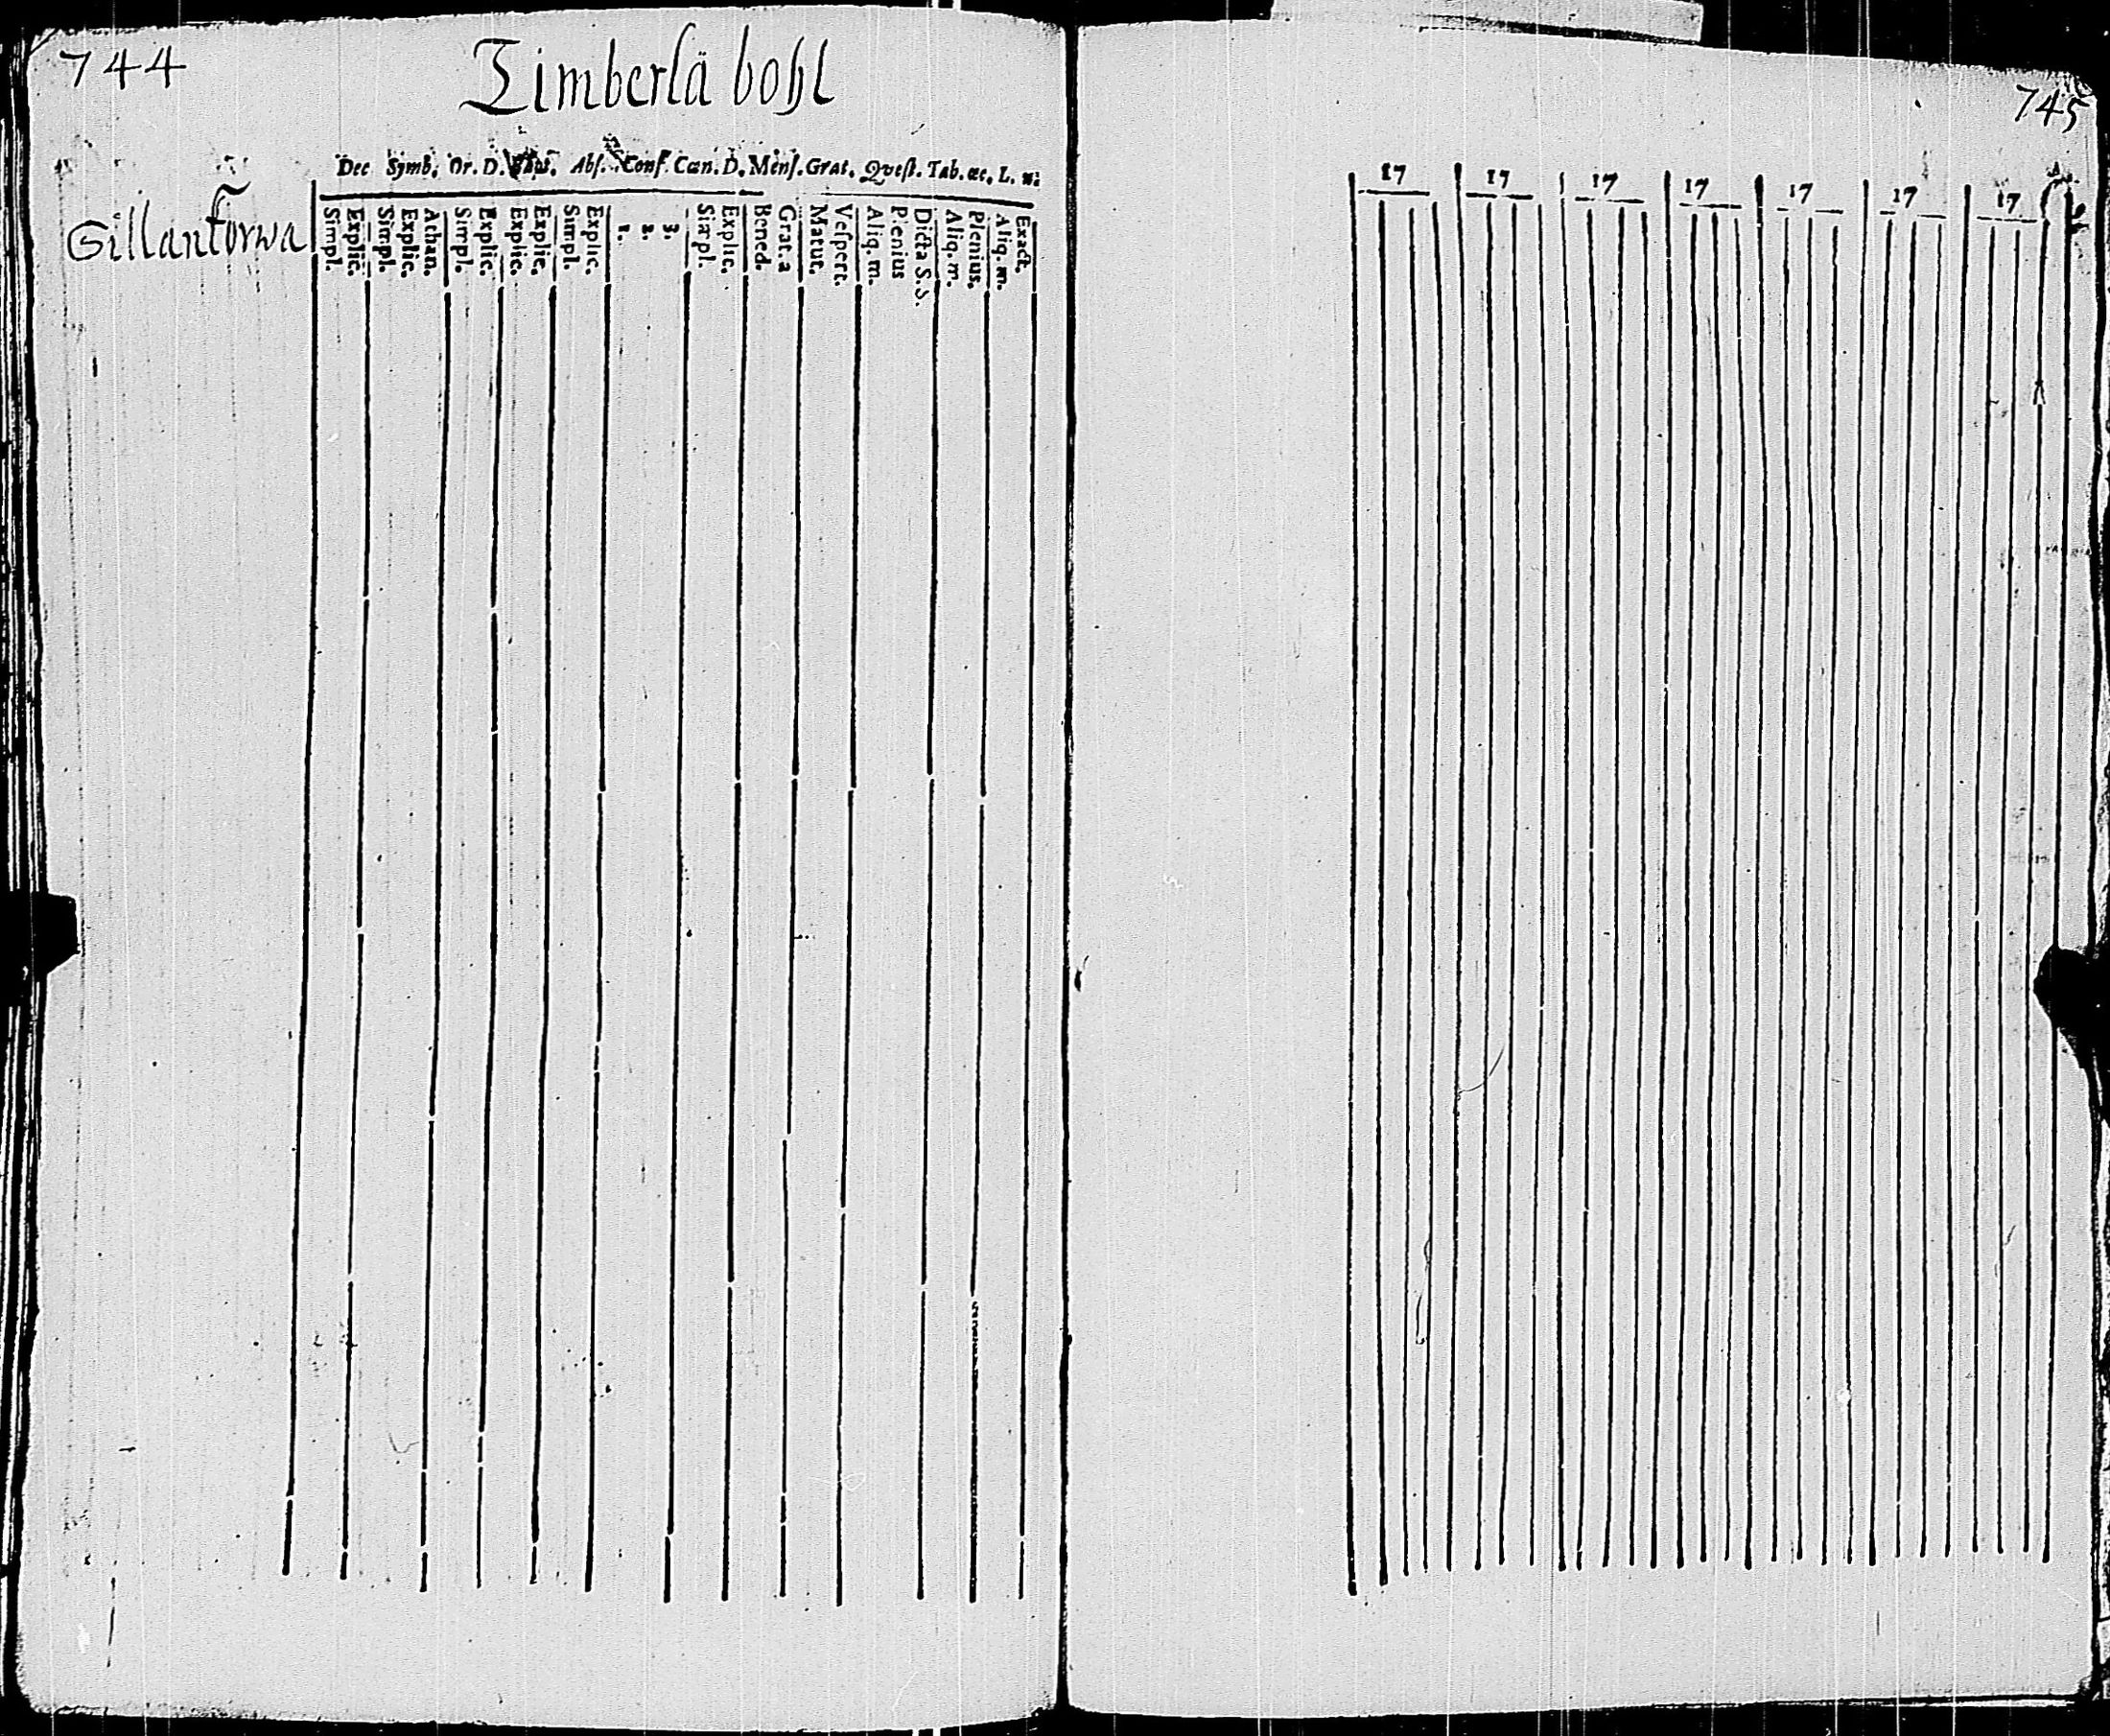 744
Timberlä bohl
Dec Symb. Or. D. Bapt. Abſ. Conf. Cœn. D. Menſ. Grat. Qveſt. Tab. œc. L. ni
Gillantorwa
Simpl.
Explic.
Simpl.
Explic.
Athan.
Simpl.
Explic.
Explic.
Explic.
Simpl.
Explic.
1.
2.
3.
Simpl.
Explic.
Bened.
Grat. a
Matut.
Veſpert.
Aliq. m.
Plenius
Dicta S.S.
Aliq. m.
Plenius.
Aliq. m.
Exact.
745
17 17 17 17 17 17 17